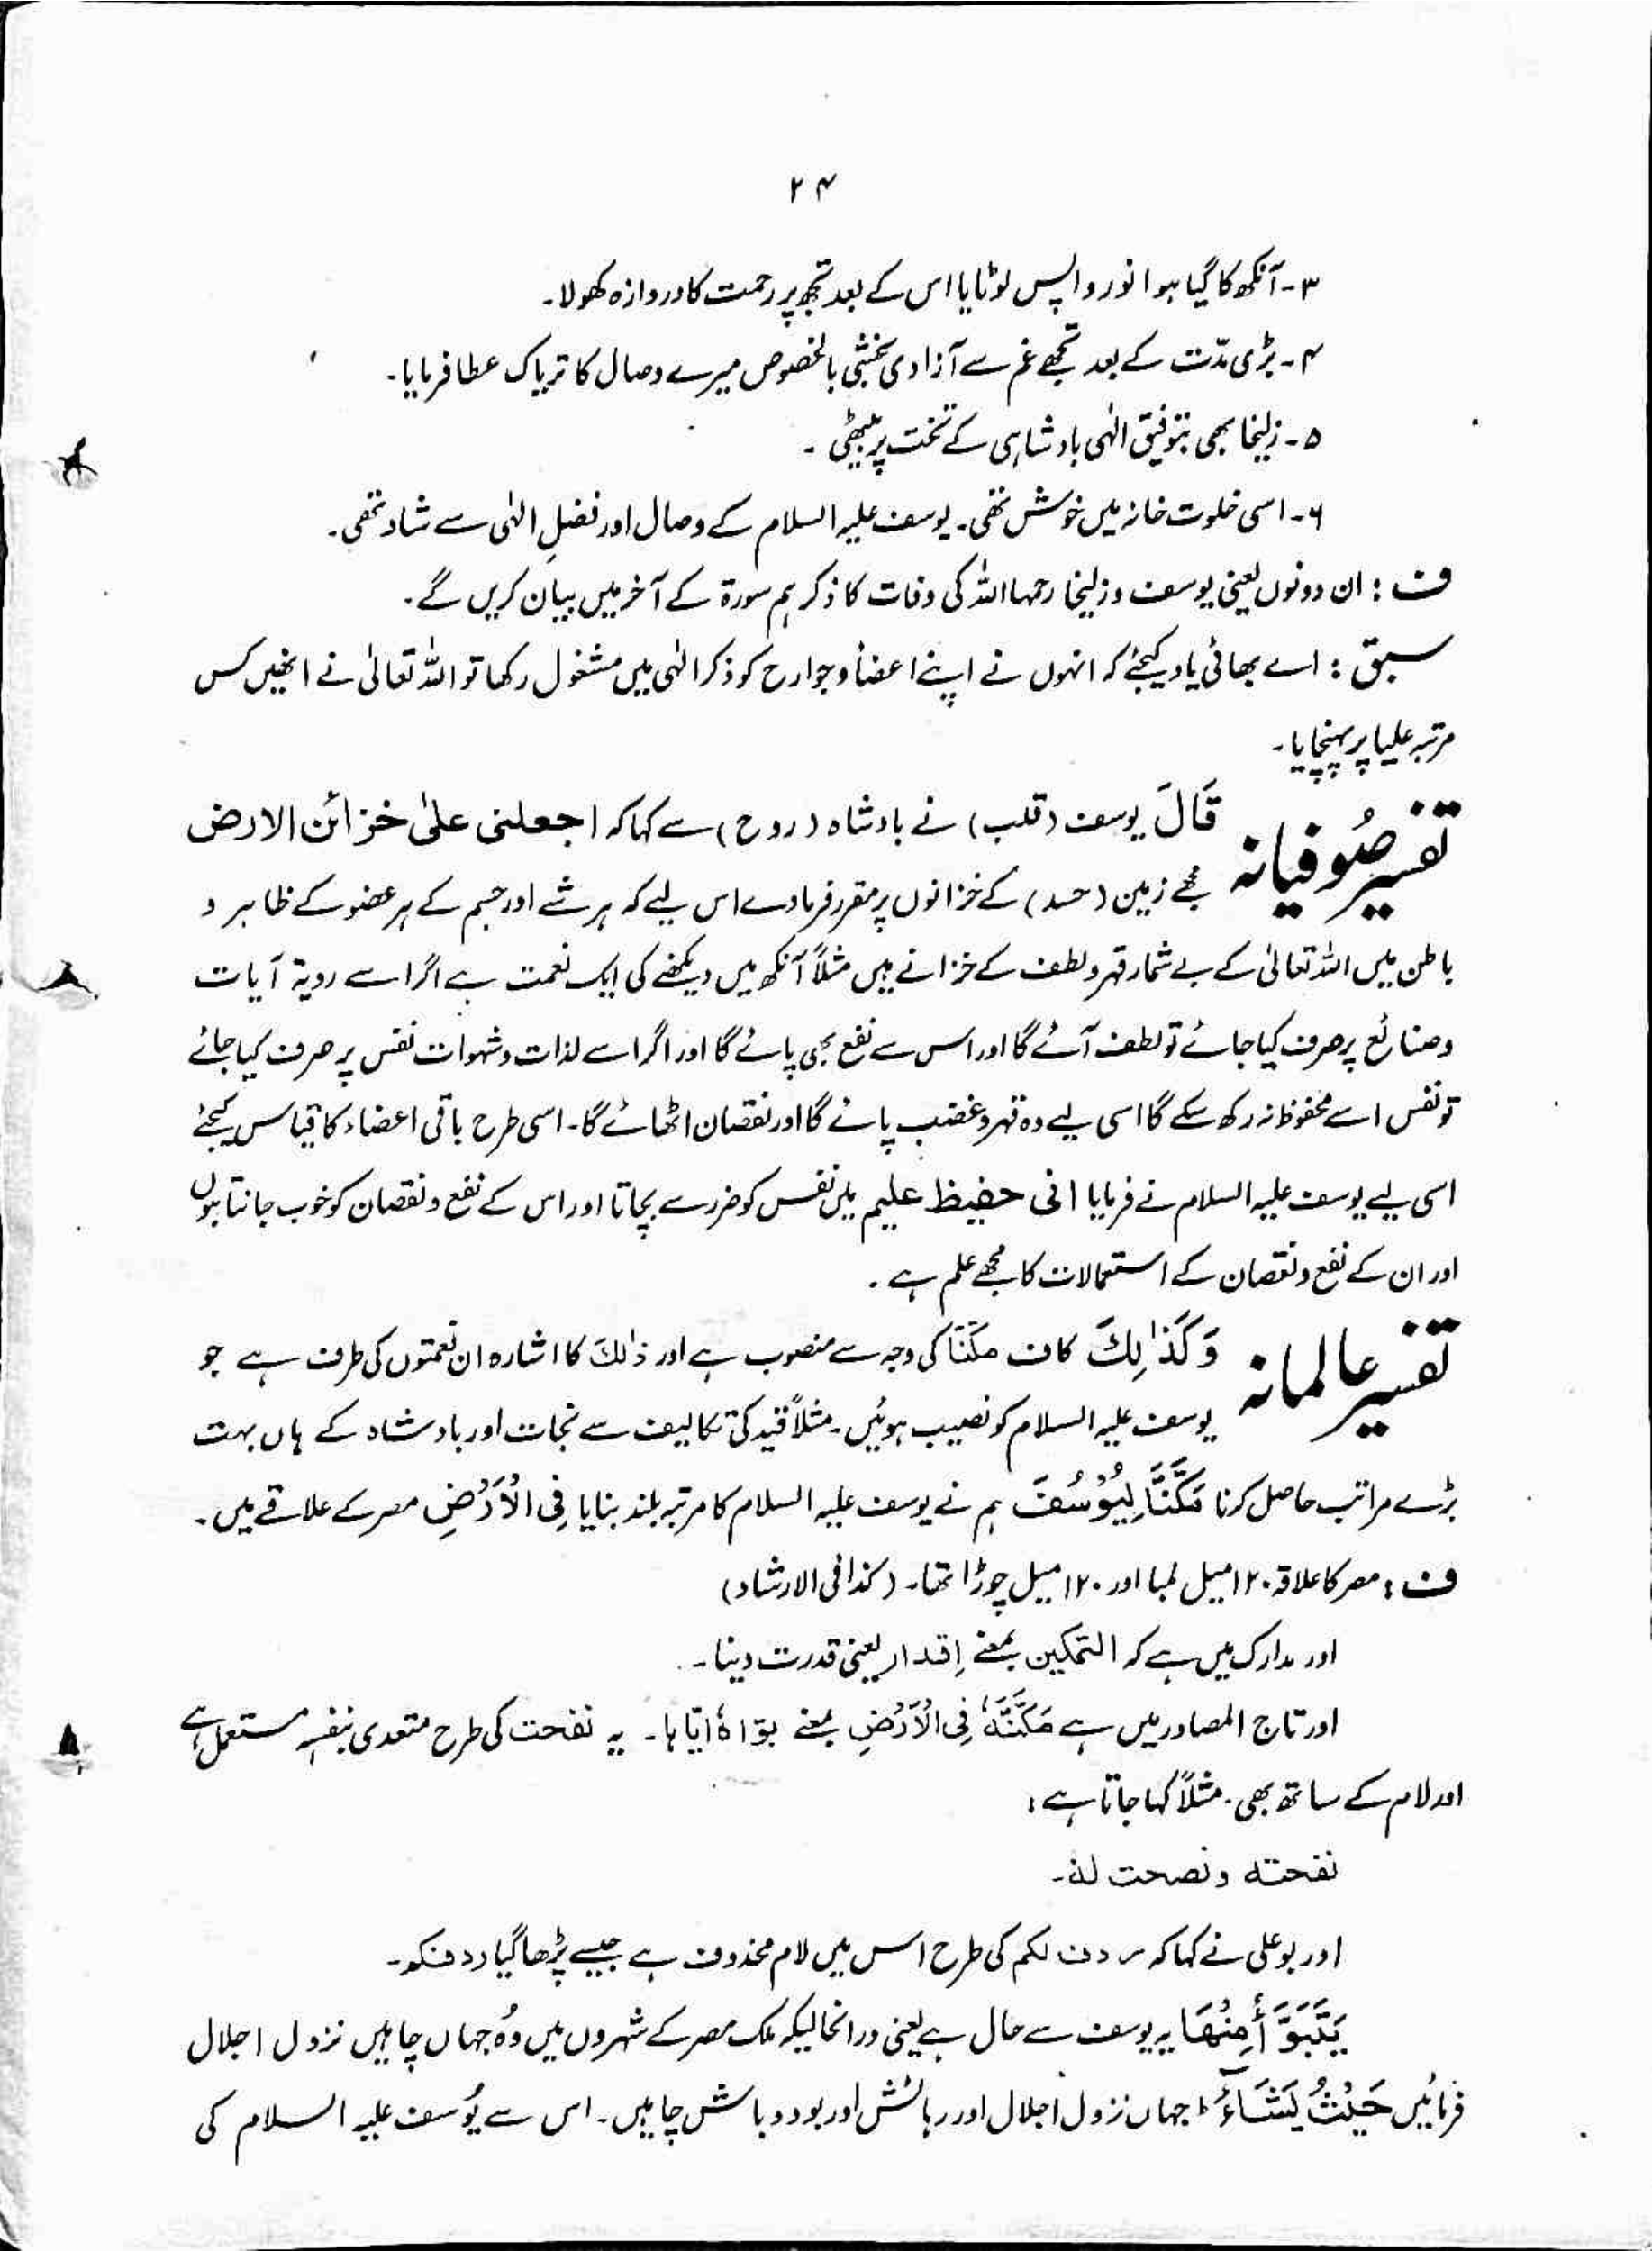 ۲۴
۳۔ آنکھ کا گیا ہوا نور واپس لوٹایا اس کے بعد تجھ پر رحمت کا دروازہ کھولا۔
۴۔ بڑی مدّت کے بعد تجھے غم سے آزادی بخشی بالخصوص میرے وصال کا تریاک عطا فرمایا۔
۵۔ زلیخا بھی بتوفیق الٰہی بادشاہی کے تخت پر بیٹھی۔
۶۔ اسی خلوت خانہ میں خوش تھی۔ یوسف علیہ السلام کے وصال اور فضلِ الٰہی سے شاد تھی۔
ف : ان دونوں یعنی یوسف و زلیخا رحمہا اللہ کی وفات کا ذکر ہم سورۃ کے آخر میں بیان کریں گے۔
سبق : اے بھائی یاد کیجئے کہ انہوں نے اپنے اعضأ و جوارح کو ذکر الٰہی میں مشغول رکھا تو اللہ تعالیٰ نے انھیں کس
مرتبہ علیا پر پہنچایا۔
تفسیر صُوفیانہ قَالَ یوسف (قلب) نے بادشاہ (روح) سے کہا کہ اجعلنی علیٰ خزائن الارض
مجھے زمین (جسد) کے خزانوں پر مقرر فرما دے اس لیے کہ ہر شے اور جسم کے ہر عضو کے ظاہر و
باطن میں اللہ تعالیٰ کے بے شمار قہر و لطف کے خزانے ہیں مثلاً آنکھ میں دیکھنے کی ایک نعمت ہے اگر اسے رویۃ آیات
و صنائع پر صرف کیا جائے تو لطف آئے گا اور اس سے نفع بھی پائے گا اور اگر اسے لذات و شہوات نفس پر صرف کیا جائے
تو نفس اسے محفوظ نہ رکھ سکے گا اسی لیے وہ قہر و غضب پائے گا اور نقصان اٹھائے گا۔ اسی طرح باقی اعضاء کا قیاس کیجئے
اسی لیے یوسف علیہ السلام نے فرمایا انی حفیظ علیم میں نفس کو ضرر سے بچاتا اور اس کے نفع و نقصان کو خوب جانتا ہوں
اور ان کے نفع و نقصان کے استعمالات کا مجھے علم ہے۔
تفسیر عالمانہ وَكَذٰلِكَ کاف مکنّا کی وجہ سے منصوب ہے اور ذٰلكَ کا اشارہ ان نعمتوں کی طرف ہے جو
یوسف علیہ السلام کو نصیب ہوئیں۔ مثلاً قید کی تکالیف سے نجات اور بادشاہ کے ہاں بہت
بڑے مراتب حاصل کرنا مَكَّنَّا لِيُوْسُفَ ہم نے یوسف علیہ السلام کا مرتبہ بلند بنایا فِی الْاَرْضِ مصر کے علاقے میں۔
ف : مصر کا علاقہ ۱۲۰ میل لمبا اور ۱۲۰ میل چوڑا تھا۔ (کذا فی الارشاد)
اور مدارک میں ہے کہ التمکین بمعنے اِقدار یعنی قدرت دینا۔
اور تاج المصادر میں ہے مَكَّنَّهٗ فِی الْاَرْضِ بمعنے بوّاہٗ ایّاھا۔ یہ نفحت کی طرح متعدی بنفسہٖ مستعمل ہے
اور لام کے ساتھ بھی۔ مثلاً کہا جاتا ہے :
نفحته ونصحت لهٗ۔
اور بوعلی نے کہا کہ ردف لکم کی طرح اس میں لام محذوف ہے جیسے پڑھا گیا ردفکم۔
يَتَبَوَّأُ مِنْهَا یہ یوسف سے حال ہے یعنی درانحالیکہ ملک مصر کے شہروں میں وُہ جہاں چاہیں نزول اجلال
فرمائیں حَيْثُ يَشَآءُ ؕ جہاں نزول اجلال اور رہائش اور بود و باش چاہیں۔ اس سے یُوسف علیہ السلام کی